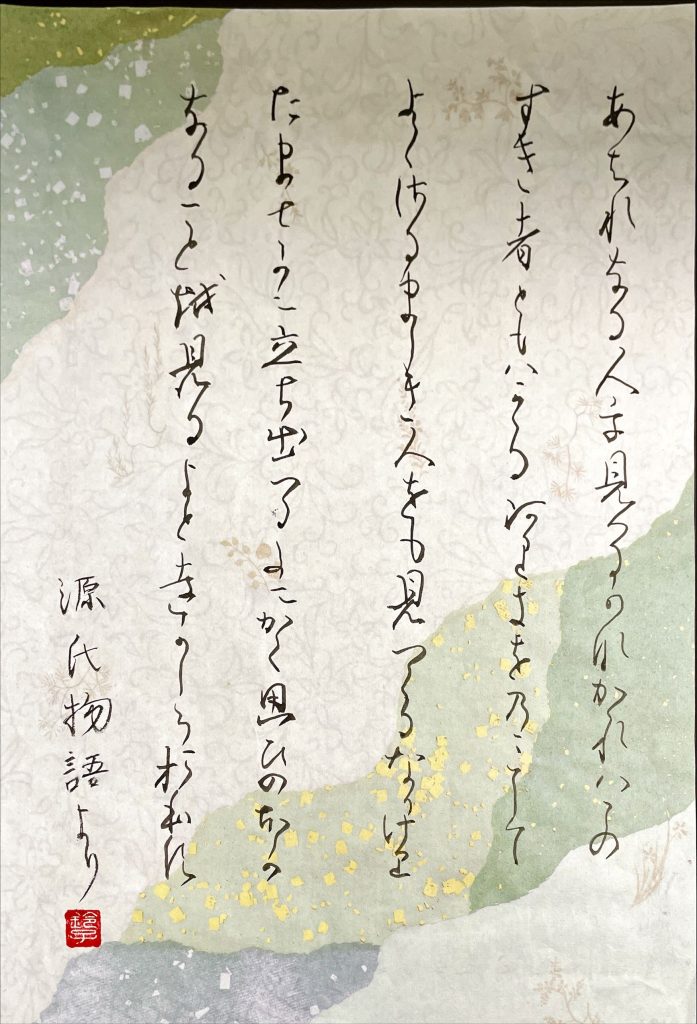 あはれなる人を見つるかなかかれはこの
すき者ともはかかるありきをのみして
よくさるましき人をも見つくるなりけり
たまさかに立ち出つるたにかく思ひのほか
なることを見るよとをかしうおほす
源氏物語より